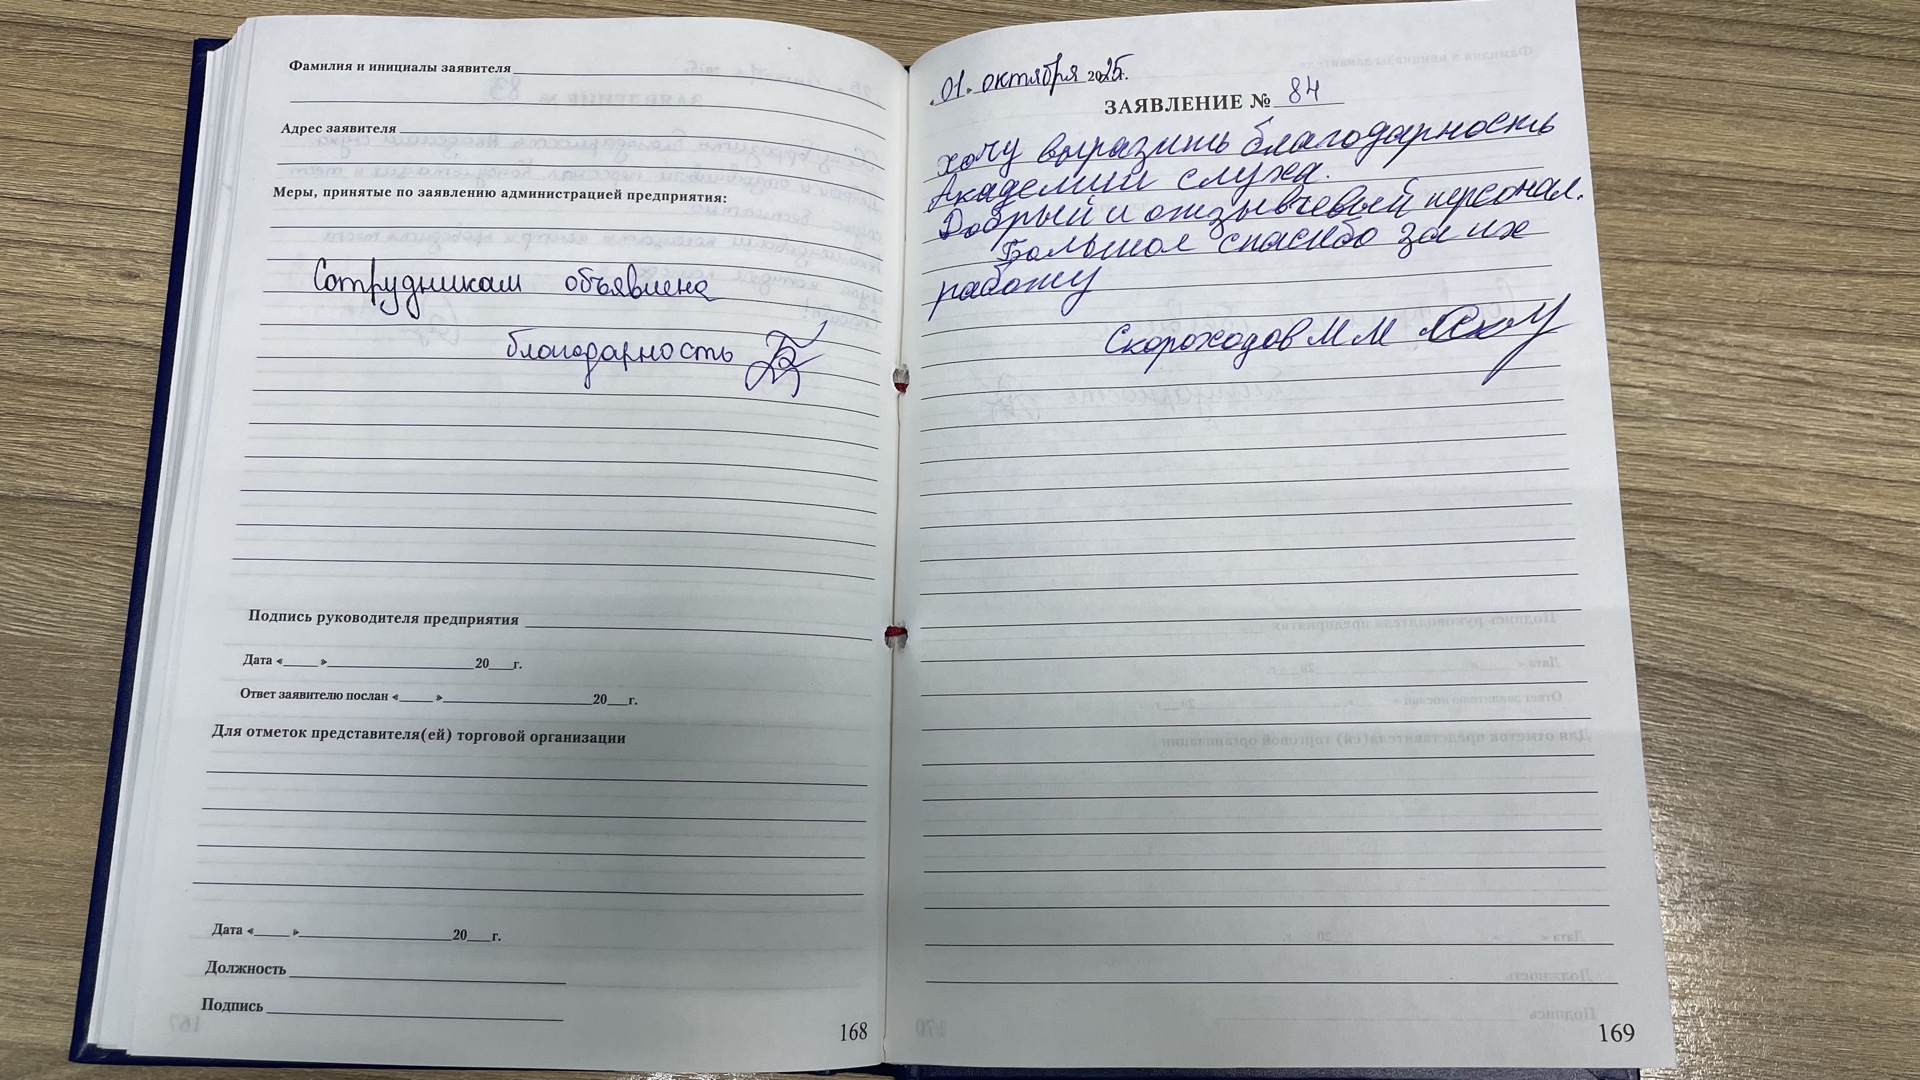 Фамилия и инициалы заявителя
Адрес заявителя
Меры, принятые по заявлению администрацией предприятия:
Сотрудникам объявлена
благодарность
Подпись руководителя предприятия
Дата «____»____________20__г.
Ответ заявителю послан «____»____________20__г.
Для отметок представителя(ей) торговой организации
Дата «____»____________20__г.
Должность
Подпись
168
«01» октября 2025г.
ЗАЯВЛЕНИЕ № 84
Хочу выразить благодарность
Академии слуха.
Добрый и отзывчевый персонал.
Большое спасибо за их
работу
Скороходов М М
169